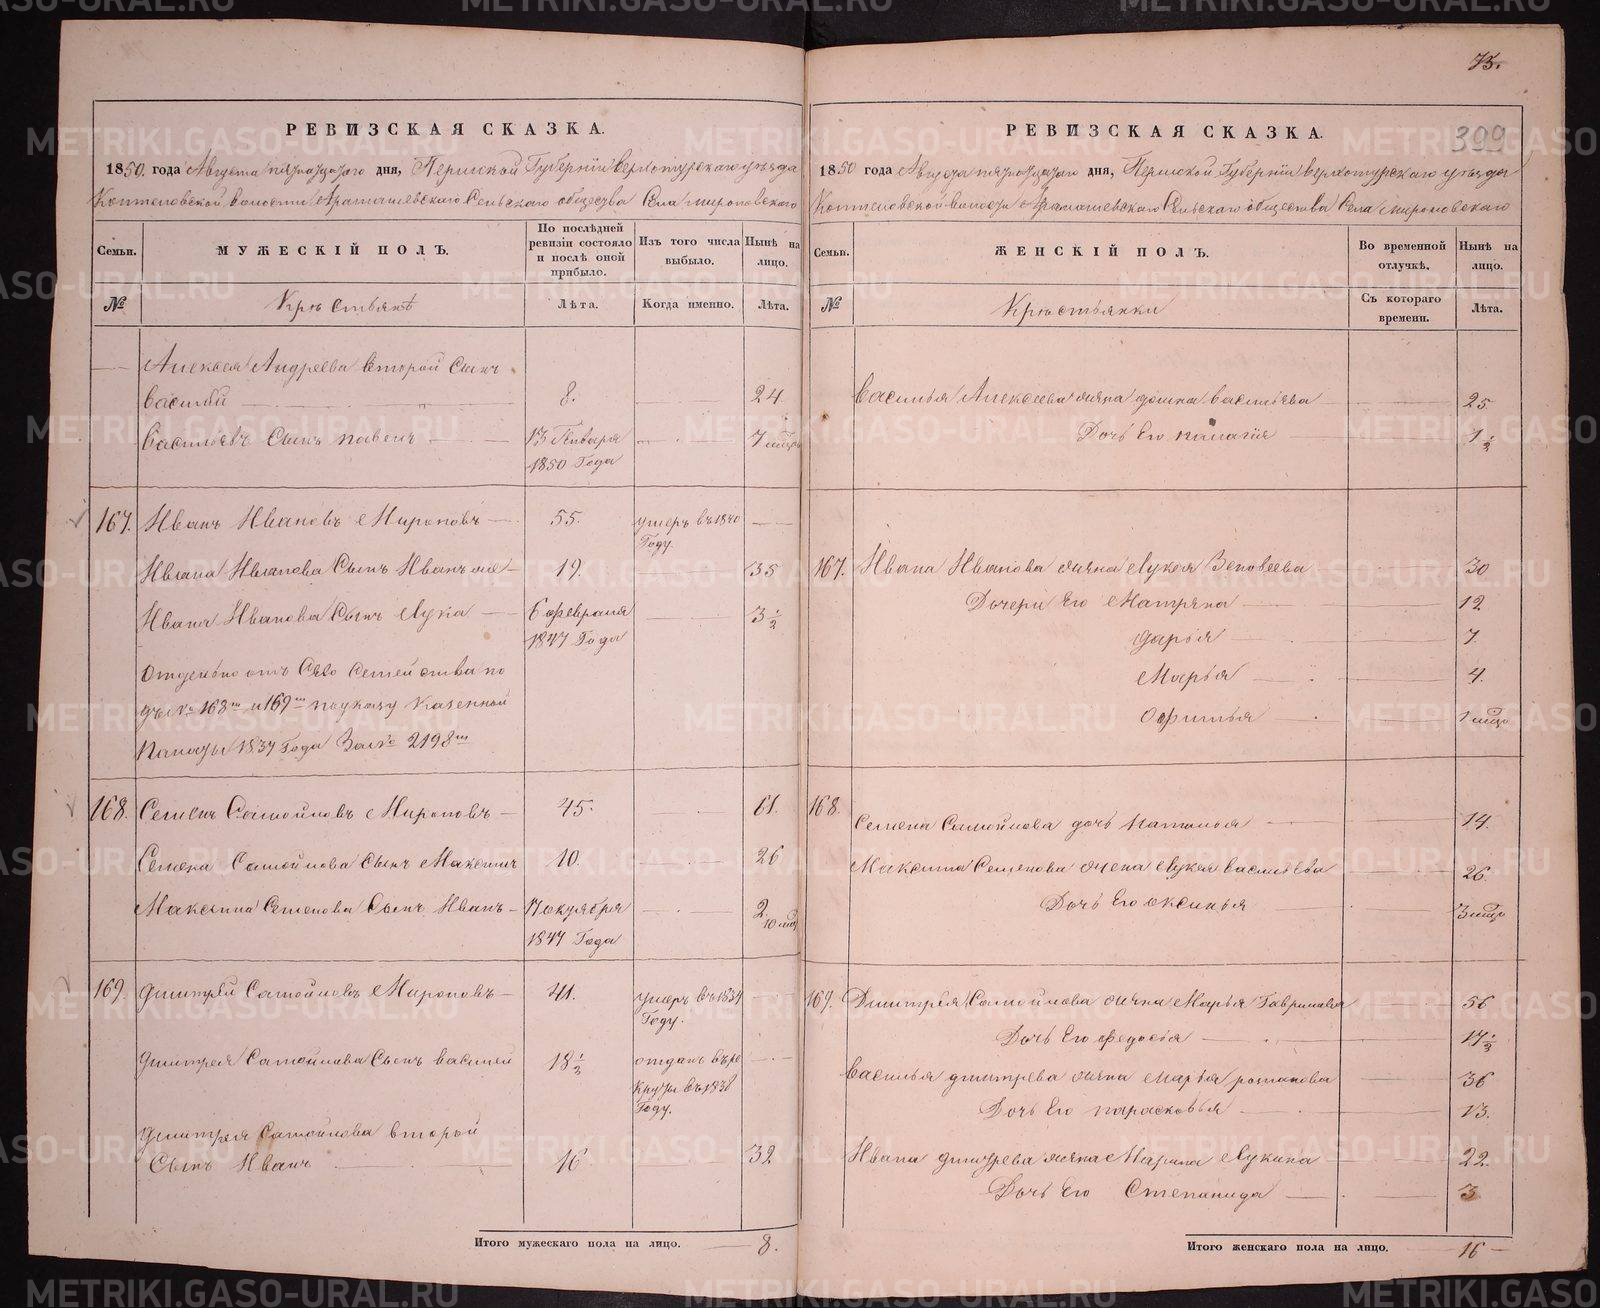 75.
399
РЕВИЗСКАЯ СКАЗКА.
1850 года Августа пятнадцатаго дня, Пермской Губерніи верхотурскаго уѣзда
Коптеловской волости Арамашевскаго Сельскаго общества Села мироновскаго
Семьи. МУЖЕСКІЙ ПОЛЪ. По послѣдней ревизіи состояло и послѣ оной прибыло. Изъ того числа выбыло. Нынѣ на лицо.
№ Крѣстьянѣ Лѣта. Когда именно. Лѣта.
Алексея Андреева второй Сынъ
василей 8. 24
Васильевъ Сынъ павелъ 13 Января 7 мѣцов
1850 Года
167. Иванъ Ивановъ Мироновъ 55. умеръ въ 1840
Году.
Ивана Иванова Сынъ Иванъ же 19. 35
Ивана Иванова Сынъ Лука 6 февраля 3 1/2
1847 Года
Отдельно отъ Сего Семейства по
дъ № 168 м и 169 м поуказу Казенной
Палаты 1837 Года За № 2198 м
168. Семенъ Самойловъ Мироновъ 45. 61.
Семена Самойлова Сынъ Максимъ 10. 26
Максима Семенова Сынъ Иванъ 17 октября 2. 10 мѣц
1847 Года
169. Дмитрей Самойловъ Мироновъ 41. умеръ въ 1837
Году.
Дмитрея Самойлова Сынъ василей 18 1/2 отданъ въ ре
круты въ 1838
Году.
Дмитрея Самойлова второй
Сынъ Иванъ 16 32
Итого мужескаго пола на лицо. 8.
РЕВИЗСКАЯ СКАЗКА.
1850 года Августа пятнадцатаго дня, Пермской Губерніи верхотурскаго уѣзда
Коптеловской волости Арамашевскаго Сельскаго общества Села мироновскаго
Семьи. ЖЕНСКІЙ ПОЛЪ. Во временной отлучкѣ. Нынѣ на лицо.
№ Крѣстьянки Съ котораго времени. Лѣта.
Василья Алексеева жена домна васильева 25
Дочь Его палагія 1 1/2
167. Ивана Иванова жена Лукея Зеновеева 30
Дочери Его Матрена 12
дарья 7.
Марья 4.
Офимья 1 мѣцъ
168. Семена Самойлова дочь наталья 14.
Максима Семенова жена Лукея васильева 26
Дочь Его оксинья 3 мѣцо
169. Дмитрея Самойлова жена Марья Гаврилова 56
Дочь Его федосія 17 1/2
Василья дмитрева жена марья романова 36
Дочь Его парасковья 13.
Ивана дмитрева жена Марина Лукина 22.
Дочь Его Степанида 3
Итого женскаго пола на лицо. 16
METRIKI.GASO-URAL.RU